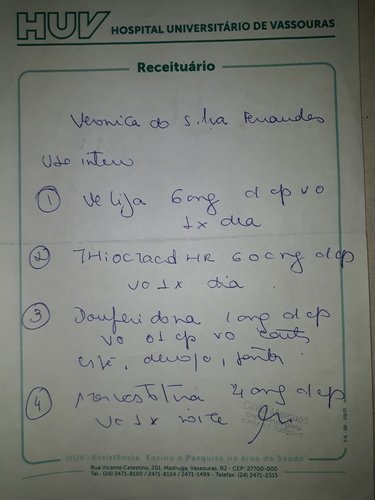 HUV HOSPITAL UNIVERSITÁRIO DE VASSOURAS
Receituário
Veronica da Silva Fernandes
Uso interno
1 Velija 60mg d cp vo
1x dia
2 THIOCTACID HR 600mg d cp
vo 1x dia
3 Domperidona 10mg d cp
vo 01 cp vo antes
café, almoço, janta.
4 40mg d cp
vo 1x noite
HUV - Assistência, Ensino e Pesquisa na área de Saúde
Rua Vicente Celestino, 201, Madruga, Vassouras, RJ - CEP: 27700-000
Tel.: (24) 2471-8100 / 2471-8124 / 2471-1499 - Telefax: (24) 2471-2315